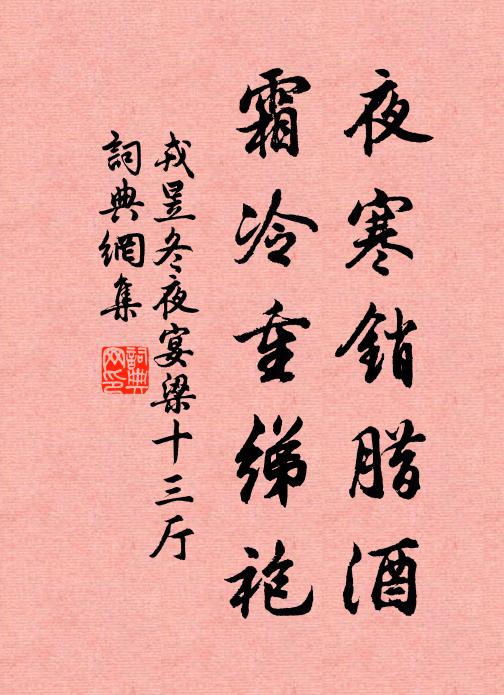 夜寒銷腊酒
霜冷重綈袍
戎昱冬夜宴梁十三厅
詞典網集
詞典
网印